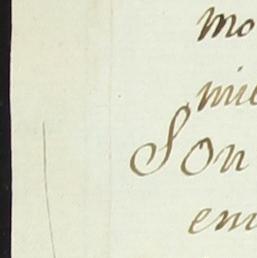 mo
mi
Son
em